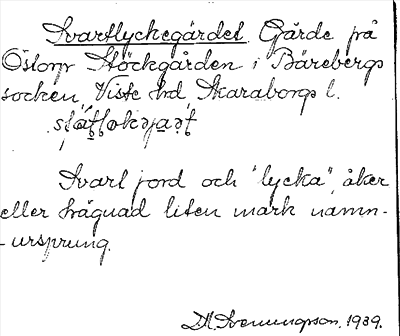 Svartlyckegärdet. Gärde på
Östorp Stöckgården i Bärebergs
socken, Viste hd Skaraborgs l.
Svart jord och "lycka", åker
eller hägnad liten mark namn-
-ursprung.
D.H. Svenungson. 1939.